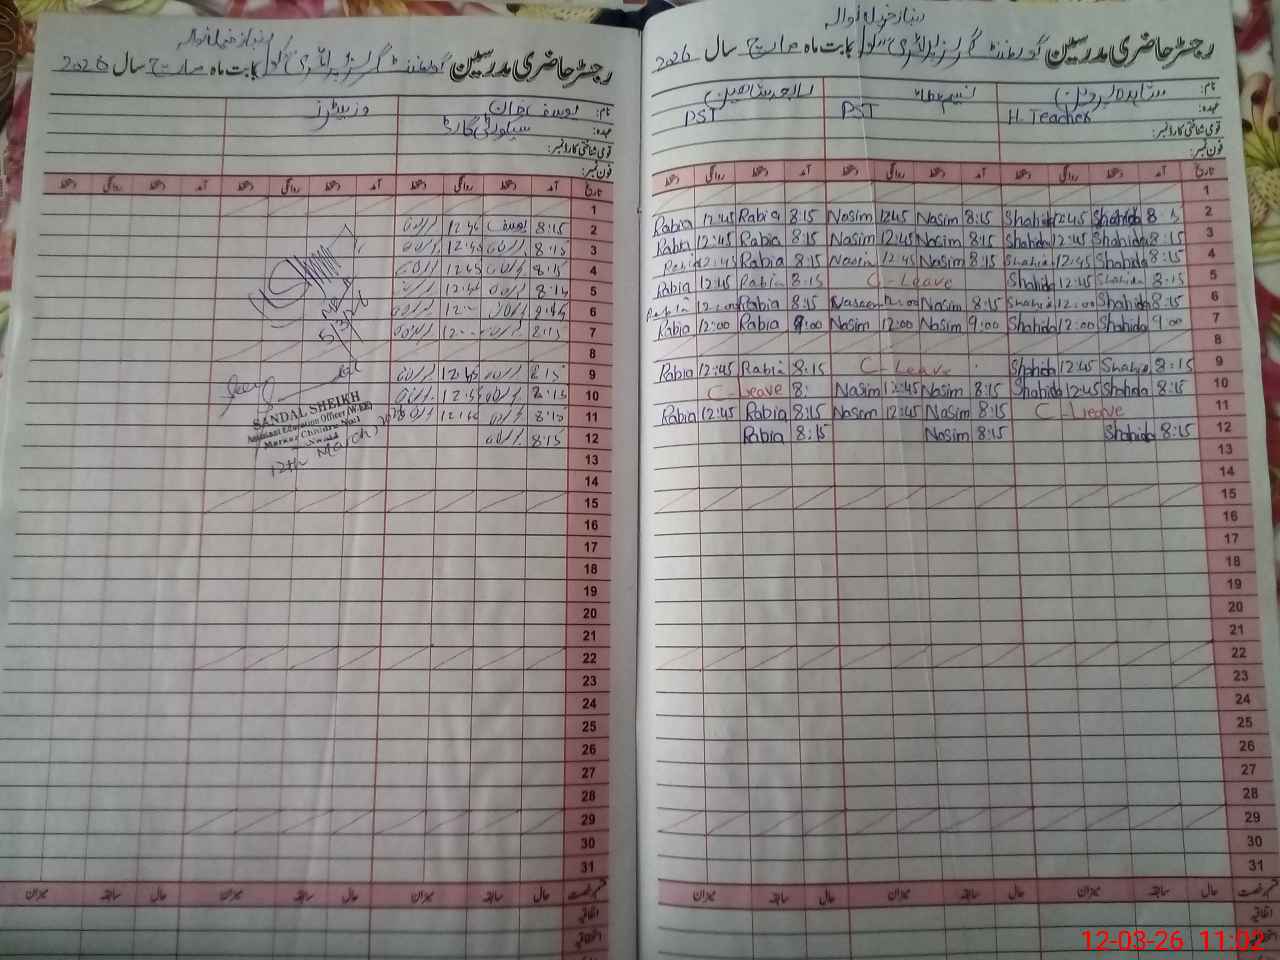 رجسٹر حاضری مدرسین گورنمنٹ گرلز پرائمری سکول بابت ماہ مارچ سال 2026
نام: یوسف خان وزیٹرز
عہدہ: سیکورٹی گارڈ
قومی شناختی کارڈ نمبر:
فون نمبر:
تاریخ آمد دستخط روانگی دستخط آمد دستخط روانگی دستخط
1
2 8:15 یوسف 12:45
3 8:15 12:45
4 8:15 12:45
5 8:15 12:45
6 12:00
7 8:15 12:00
8
9 8:15 12:45
10 8:15 12:45
11 8:15
12 8:15
5/3/26
SANDAL SHEIKH
Assistant Education Officer (W-EE)
12th March, 2026
13
14
15
16
17
18
19
20
21
22
23
24
25
26
27
28
29
30
31
حال سابقہ میزان حال سابقہ میزان
اتفاقیہ
رجسٹر حاضری مدرسین گورنمنٹ گرلز پرائمری سکول بابت ماہ مارچ سال 2026
نام: شاہدہ پروین نسیم رابعہ شاہین
عہدہ: H. Teacher PST PST
قومی شناختی کارڈ نمبر:
فون نمبر:
تاریخ آمد دستخط روانگی دستخط آمد دستخط روانگی دستخط آمد دستخط روانگی دستخط
1
Rabia 12:45 Rabia 8:15 Nasim 12:45 Nasim 8:15 Shahida 12:45 Shahida 2
Rabia 12:45 Rabia 8:15 Nasim 12:45 Nasim 8:15 Shahida 12:45 Shahida 8:15 3
Rabia 12:45 Rabia 8:15 Nasim 12:45 Nasim 8:15 Shahida 12:45 Shahida 8:15 4
Rabia 12:45 Rabia 8:15 C-Leave Shahida 12:45 Shahida 8:15 5
Rabia 12:00 Rabia 8:15 Naseem 12:00 Nasim 8:15 Shahida 12:00 Shahida 8:15 6
Rabia 12:00 Rabia 9:00 Nasim 12:00 Nasim 9:00 Shahida 12:00 Shahida 9:00 7
8
Rabia 12:45 Rabia 8:15 C-Leave Shahida 12:45 Shahida 8:15 9
C-Leave 8: Nasim 12:45 Nasim 8:15 Shahida 12:45 Shahida 8:15 10
Rabia 12:45 Rabia 8:15 Nasim 12:45 Nasim 8:15 C-Lieave 11
Rabia 8:15 Nasim 8:15 Shahida 8:15 12
13
14
15
16
17
18
19
20
21
22
23
24
25
26
27
28
29
30
31
حال سابقہ میزان حال سابقہ میزان حال سابقہ میزان
اتفاقیہ
12-03-26 11:02